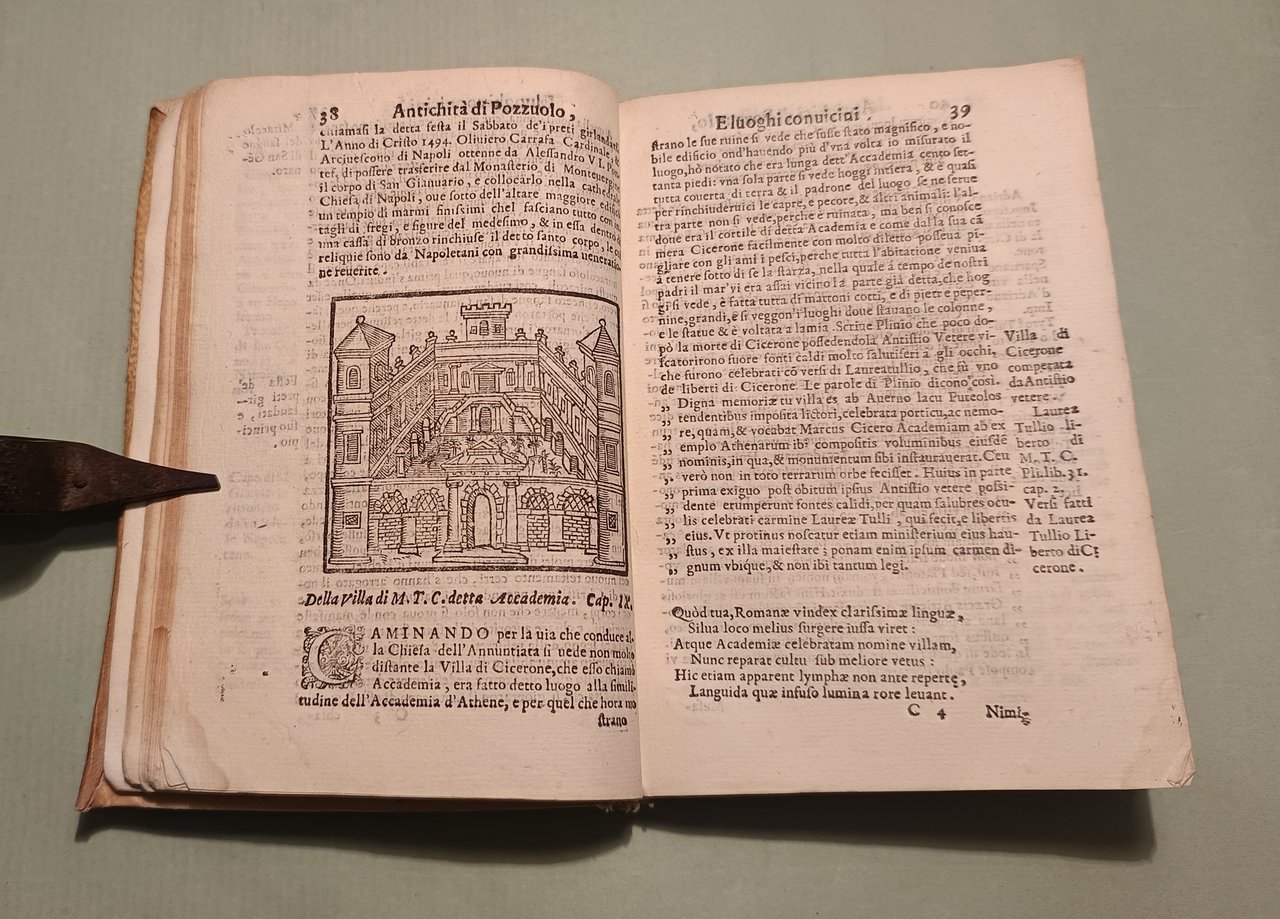 38 Antichità di Pozzuolo,
chiamasi la detta festa il Sabbato de'i preti girlandati
L'Anno di Cristo 1494. Oliuiero Carrafa Cardinale, &
Arciuescouo di Napoli ottenne da Alessandro VI.
tef. di possere trasferire dal Monasterio di Monteuergine
il corpo di San Gianuario, e collocarlo nella cathedrale
Chiesa di Napoli, oue sotto dell'altare maggiore edificò
un tempio di marmi finissimi chel fasciano tutto con
tagli di fregi, e figure del medesimo, & in essa dentro
una cassa di bronzo rinchiuse il detto santo corpo, le
reliquie sono da Napoletani con grandissima ueneratio
ne reuerite.
Della Villa di M. T. C. detta Accademia. Cap. IX.
CAMINANDO per la uia che conduce al-
la Chiesa dell'Annuntiata si vede non molto
distante la Villa di Cicerone, che esso chiamò
Accademia, era fatto detto luogo alla simili-
tudine dell'Accademia d'Athene, e per quel che hora mo
strano
E luoghi conuicini. 39
strano le sue ruine si vede che fusse stato magnifico, e no-
bile edificio ond'hauendo più d'vna volta io misurato il
luogo, hò notato che era lunga dett'Accademia cento set-
tanta piedi: vna sola parte si vede hoggi intiera, & è quasi
tutta couerta di terra & il padrone del luogo se ne serue
per rinchiuderuici le capre, e pecore, & altri animali: l'al-
tra parte non si vede, perche è ruinata, ma ben si conosce
doue era il cortile di detta Academia e come dalla sua cā
mera Cicerone facilmente con molto diletto posseua pi-
gliare con gli ami i pesci, perche tutta l'abitatione veniua
à tenere sotto di se la starza, nella quale á tempo de nostri
padri il mar'vi era assai vicino la parte già detta, che hog
gi si vede, è fatta tutta di mattoni cotti, e di pietre peper-
nine, grandi, e si veggon'i luoghi doue stauano le colonne,
e le statue & è voltata a lamia. Scriue Plinio che poco do-
pò la morte di Cicerone possedendola Antistio Vetere vi-
scatorirono fuore fonti caldi molto salutiferi à gli occhi,
che furono celebrati cō versi di Laureatullio, che fù vno
de liberti di Cicerone. Le parole di Plinio dicono cosi.
„ Digna memoriæ tu villa es ab Auerno lacu Puteolos
„ tendentibus imposita lictori, celebrata porticu, ac nemo-
„ re, quam, & vocabat Marcus Cicero Academiam ab ex
„ emplo Athenarum ibi compositis voluminibus eiusdē
„ nominis, in qua, & monumentum sibi instaurauerat. Ceu
„ verò non in toto terrarum orbe fecisset. Huius in parte
„ prima exiguo post obitum ipsius Antistio vetere possi-
„ dente erumperunt fontes calidi, per quam salubres ocu-
„ lis celebrati carmine Laureæ Tulli, qui fecit, e libertis
„ eius. Vt protinus noscatur etiam ministerium eius hau-
„ stus, ex illa maiestate; ponam enim ipsum carmen di-
„ gnum vbique, & non ibi tantum legi.
Villa di
Cicerone
comperata
da Antistio
vetere.
Laurea
Tullio li-
berto di
M. T. C.
Pli. lib. 31.
cap. 2.
Versi fatti
da Laurea
Tullio Li-
berto di Ci
cerone.
Quòd tua, Romanæ vindex clarissimæ linguæ,
Silua loco melius surgere iussa viret:
Atque Academiæ celebratam nomine villam,
Nunc reparat cultu sub meliore vetus:
Hic etiam apparent lymphæ non ante repertę,
Languida quæ infuso lumina rore leuant.
C 4 Nimi-